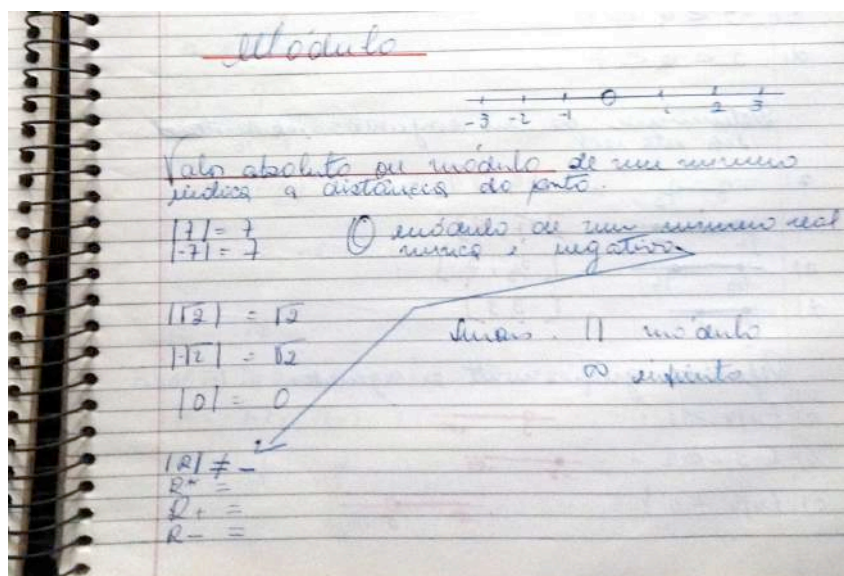 Módulo
-3 -2 -1 0 1 2 3
Valor absoluto ou módulo de um número
indica a distância do ponto.
|7| = 7
|-7| = 7
O módulo de um número real
nunca é negativo.
|√2| = √2
|-√2| = √2
|0| = 0
Sinais. || módulo
∞ infinito
|R| ≠ -
R* =
R+ =
R- =